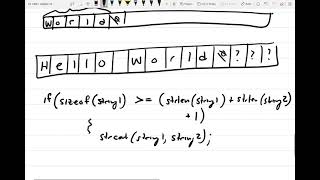 World\0
Hello World\0???
if(sizeof(string1) >= (strlen(string1)+strlen(string2)
+1)
{
strcat(string1, string2);